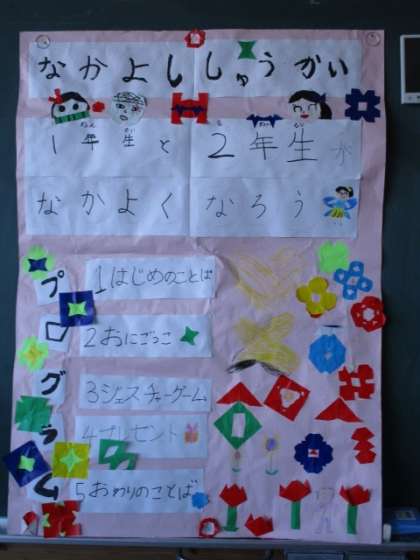 なかよししゅうかい
1年生と2年生が
なかよくなろう
プログラム
1はじめのことば
2おにごっこ
3ジェスチャーゲーム
4プレゼント
5おわりのことば